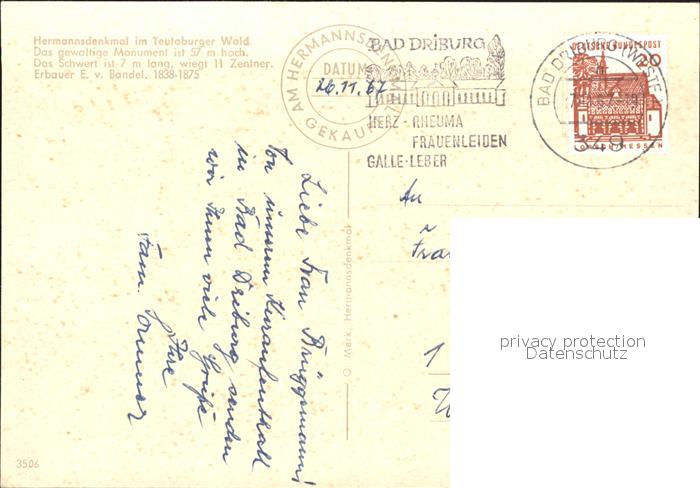 Hermannsdenkmal im Teutoburger Wald
Das gewaltige Monument ist 57 m hoch.
Das Schwert ist 7 m lang, wiegt 11 Zentner.
Erbauer E. v. Bandel. 1838-1875
AM HERMANNSDENKMAL
DATUM
26.11.67
GEKAUFT
BAD DRIBURG
HERZ - RHEUMA
FRAUENLEIDEN
GALLE-LEBER
BAD DRIBURG (WESTF
349
DEUTSCHE BUNDESPOST
20
LORSCH HESSEN
Liebe Frau Brüggemann!
Von unserem Kuraufenthalt
in Bad Driburg senden
wir Ihnen viele Grüße
Ihre
Fam.
O. Merk, Hermannsdenkmal
An
1
privacy protection
Datenschutz
3506